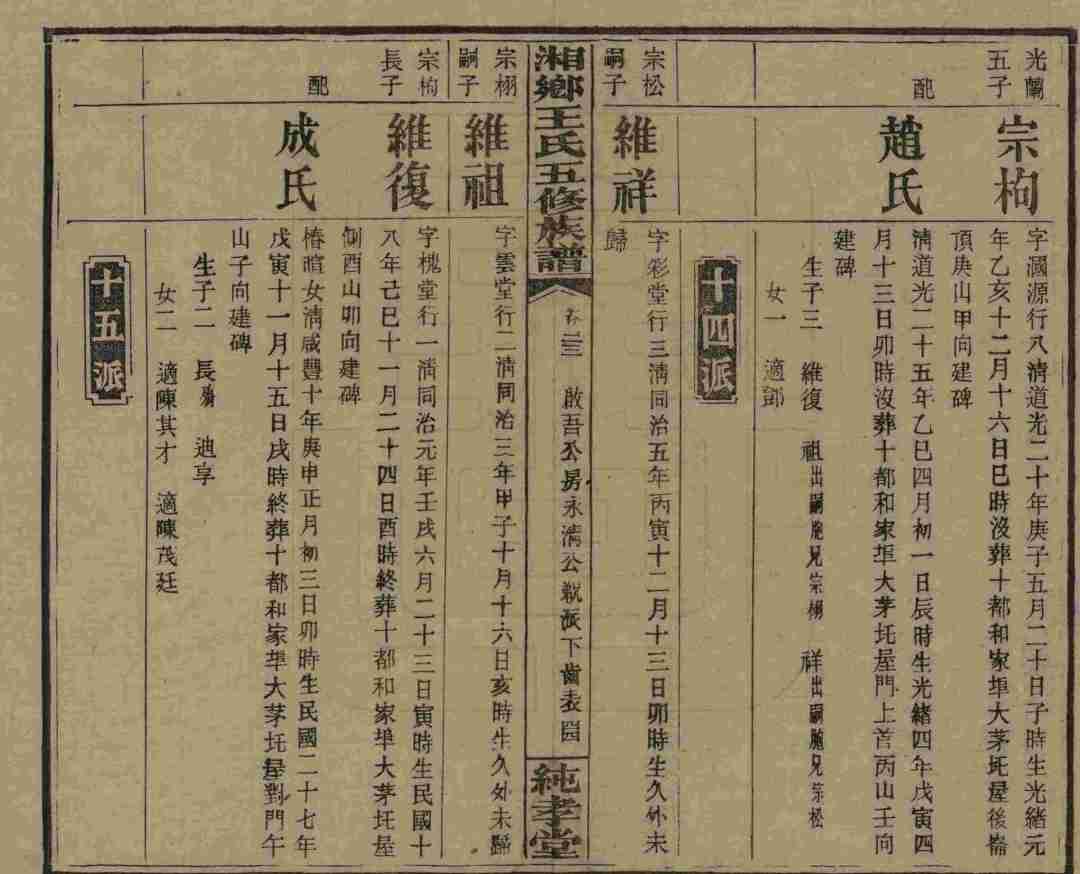 光蘭
五子
宗枸
字漍源行八清道光二十年庚子五月二十日子時生光緒元
年乙亥十二月十六日巳時沒葬十都和家埠大茅坵屋後崙
頂庚山甲向建碑
配
趙氏
清道光二十五年乙巳四月初一日辰時生光緒四年戊寅四
月十三日卯時沒葬十都和家埠大茅坵屋門上首丙山壬向
建碑
生子三 維復 祖出嗣胞兄宗栩 祥出嗣胞兄宗松
女一 適鄧
十四派
宗松
嗣子
維祥
字彩堂行三清同治五年丙寅十二月十三日卯時生久外未
歸
湘鄉王氏五修族譜
卷三 啟吾公房永清公親派下齒表
純孝堂
宗栩
嗣子
維祖
字雲堂行二清同治三年甲子十月十六日亥時生久外未歸
宗枸
長子
維復
字槐堂行一清同治元年壬戌六月二十三日寅時生民國十
八年己巳十一月二十四日酉時終葬十都和家埠大茅坵屋
側酉山卯向建碑
配
成氏
椿暄女清咸豐十年庚申正月初三日卯時生民國二十七年
戊寅十一月十五日戌時終葬十都和家埠大茅坵屋對門午
山子向建碑
生子二 長 迪享
女二 適陳其才 適陳茂廷
十五派